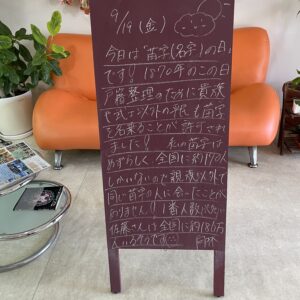 9/19(金)
今日は"苗字(名字)の日"
です!! 1870年のこの日
戸籍整理のために貴族
や武士以外の平民も苗字
を名乗ることが許され
ました! 私の苗字は
めずらしく全国に約170人
しかいないので親族以外で
同じ苗字の人に会ったことが
ありません!! 1番人数が多い
佐藤さんは全国に約186万
人いるそうです